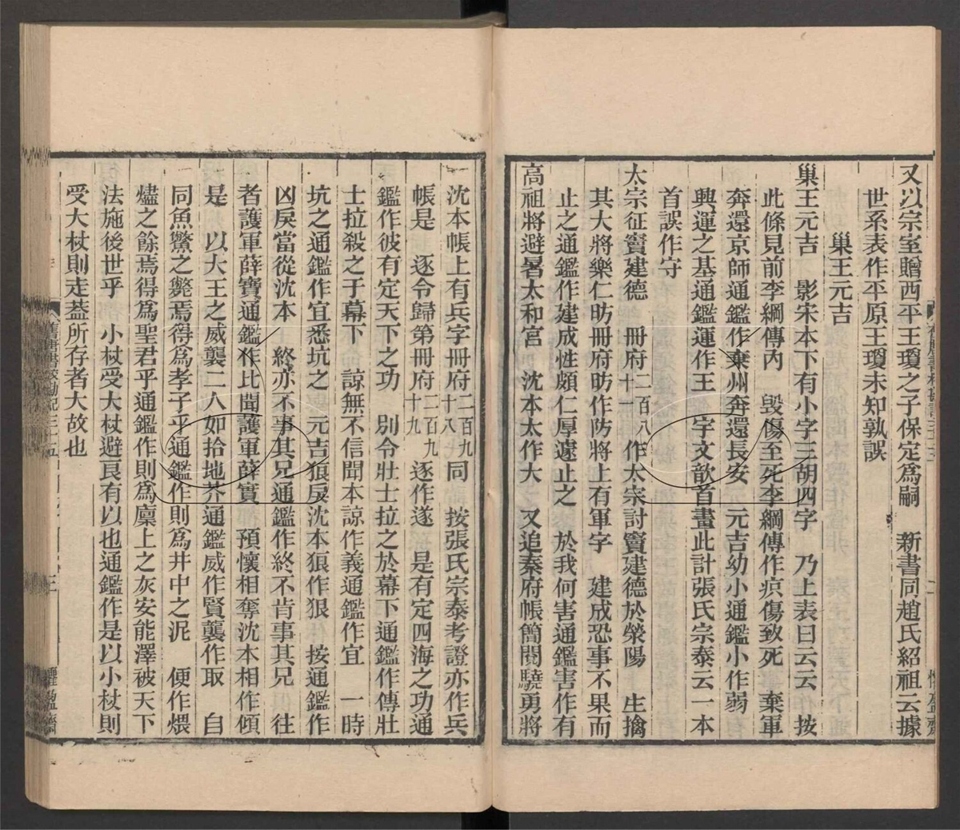 又以宗室贈西平王瓊之子保定爲嗣　新書同趙氏紹祖云據
世系表作平原王瓊未知孰誤
巢王元吉
巢王元吉　影宋本下有小字三胡四字　乃上表曰云云　按
此條見前李綱傳內　毀傷至死李綱傳作疻傷致死　棄軍
奔還京師通鑑作棄州奔還長安　元吉幼小通鑑小作弱
興運之基通鑑運作王　宇文歆首畫此計張氏宗泰云一本
首誤作守
太宗征竇建德　冊府二百八十一作太宗討竇建德於滎陽　生擒
其大將樂仁昉冊府昉作防將上有軍字　建成恐事不果而
止之通鑑作建成性頗仁厚遽止之　於我何害通鑑害作有
高祖將避暑太和宮　沈本太作大　又追秦府帳簡閱驍勇將
沈本帳上有兵字冊府二百九十八同　按張氏宗泰考證亦作兵
帳是　逐令歸第冊府二百九十九逐作遂　是有定四海之功通
鑑作彼有定天下之功　別令壯士拉之於幕下通鑑作傳壯
士拉殺之于幕下　諒無不信聞本諒作義通鑑作宜　一時
坑之通鑑作宜悉坑之　元吉狼戾沈本狼作狠　按通鑑作
凶戾當從沈本　終亦不事其兄通鑑作終不肯事其兄　往
者護軍薛寶通鑑作比聞護軍薛實　預懷相奪沈本相作傾
是　以大王之威襲二人如拾地芥通鑑威作賢襲作取　自
同魚鱉之斃焉得爲孝子乎通鑑作則爲井中之泥　便作煨
燼之餘焉得爲聖君乎通鑑作則爲廩上之灰安能澤被天下
法施後世乎　小杖受大杖避良有以也通鑑作是以小杖則
受大杖則走葢所存者大故也